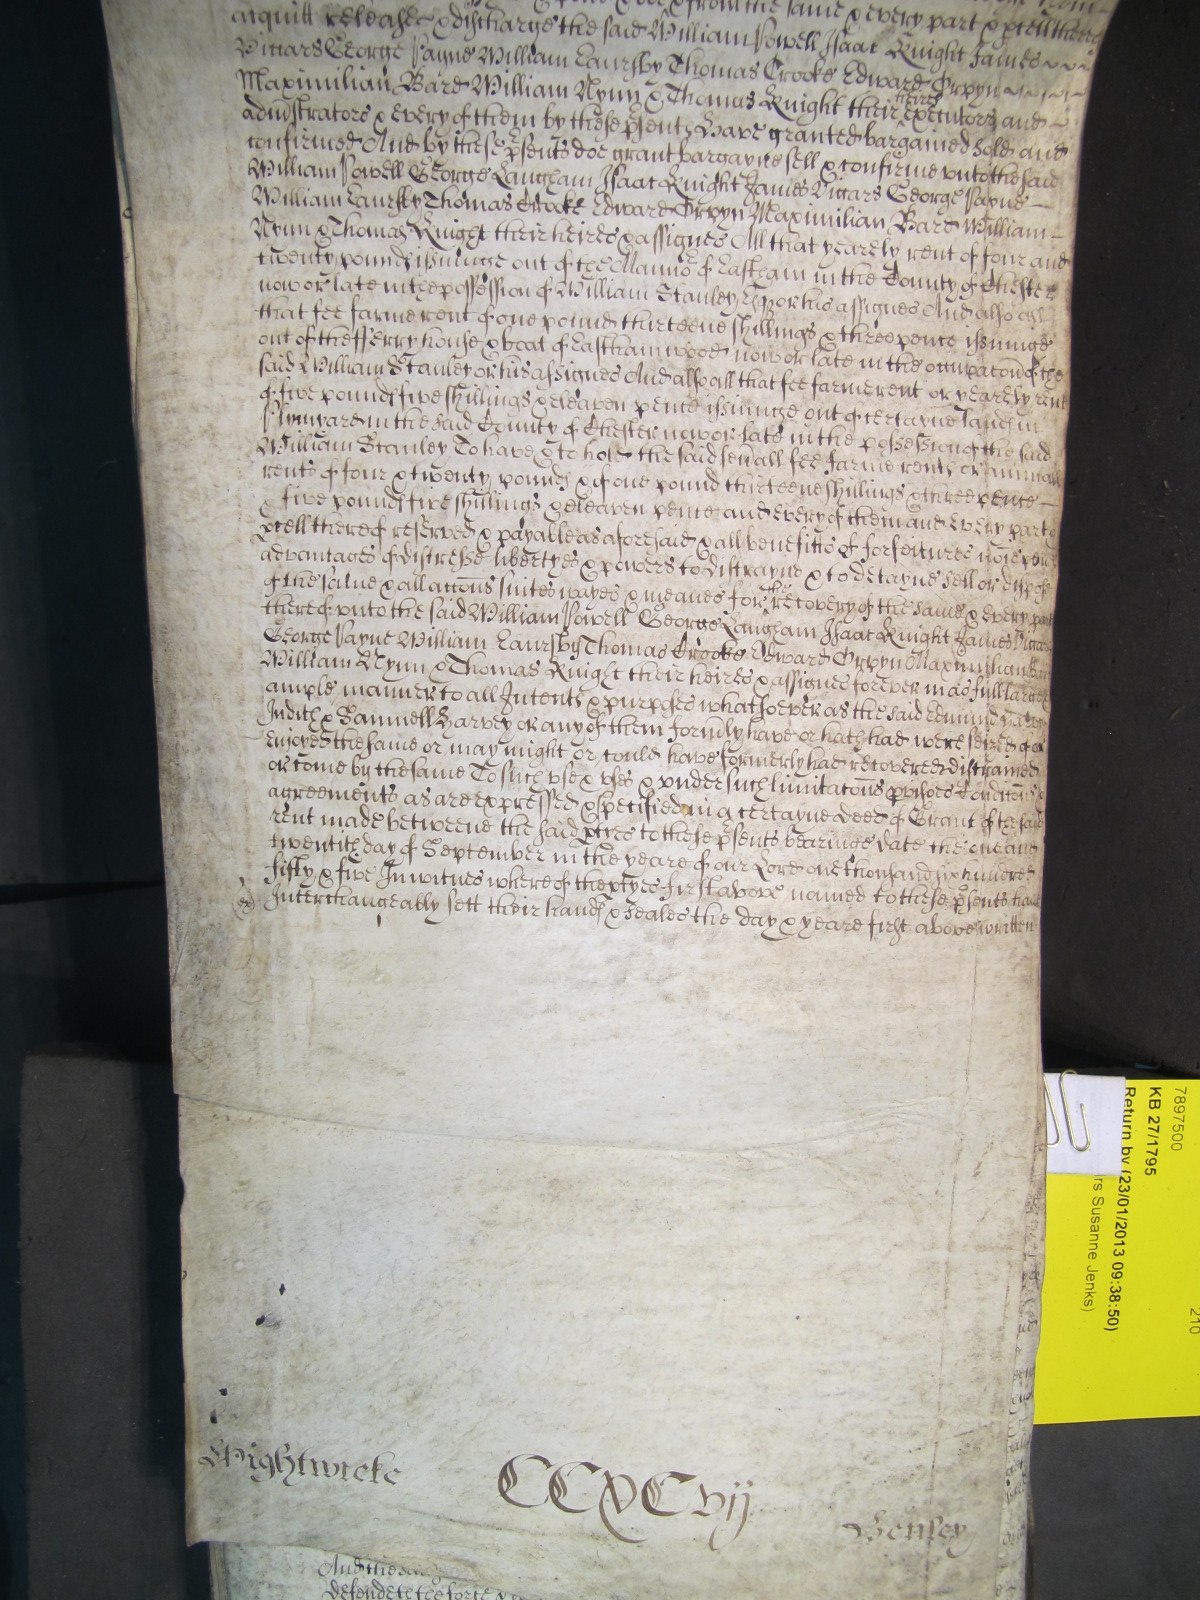 from the same & every part & pcell thereof
acquitt release & discharge the said William Powell Isaac Knight James
Vittars George Payne William Laursby Thomas Crooke Edward Orpyn
Maximilian Bard William Nynn & Thomas Knight their heires executors and
administrators & every of them by these psents Have granted bargained sold and
confirmed And by these psents doe grant bargayne sell & confirme unto the said
William Powell George Langham Isaac Knight James Vittars George Payne
William Laursby Thomas Crooke Edward Orpyn Maximilian Bard William
Nynn & Thomas Knight their heires & assignes All that yearely rent of four and
twenty pounds issuinge out of the Mannor of Eastham in the County of Chester
now or late in the possession of William Stanley Esqr or his assignes And also all
that fee farme rent of one pound thirteene shillings & three pence issuinge
out of the fferry house & boat of Eastham wood now or late in the occupacon of the
said William Stanley or his assignes And also all that fee farme rent or yearely rent
of five pounds five shillings & eleaven pence issuinge out of certayne lands in
in the said County of Chester now or late in the possession of the said
William Stanley To have & to hold the said sevall fee farme rents or annuall
rents of four & twenty pounds & of one pound thirteene shillings & three pence
& five pounds five shillings & eleaven pence and every of them and every part &
pcell thereof reserved & payable as aforesaid & all benefitts of forfeitures
advantages of distresse libertyes & powers to distrayne & to detayne sell or dispose
of the same & all accons suites wayes & meanes for the recovery of the same & every part
thereof unto the said William Powell George Langham Isaac Knight James Vittars
George Payne William Laursby Thomas Crooke Edward Orpyn Maximilian Bard
William Nynn & Thomas Knight their heires & assignes forever in as full large &
ample manner to all Intents & purposes whatsoever as the said Edmund Harvey
Judith & Samuell Harvey or any of them formly have or hath had were seized of or
enjoyed the same or may might or could have formerly had recovered distrained
or come by the same To such use & uses & under such limitacons provisoes Condicons &
agreements as are expressed & specified in a certayne deed of Grant of the said
rent made betweene the said ptyes to these psents bearinge date the one and
twentith day of September in the yeare of our Lord one thousand six hundred
fifty & five In witnes whereof the ptyes first above named to these psents have
Interchangeably sett their hands & seales the day & yeare first above written
Wightwicke
CCXCvij
Benfey
And the
defend
7897500
KB 27/1795
Return by (23/01/2013 09:38:50)
rs Susanne Jenks)
210